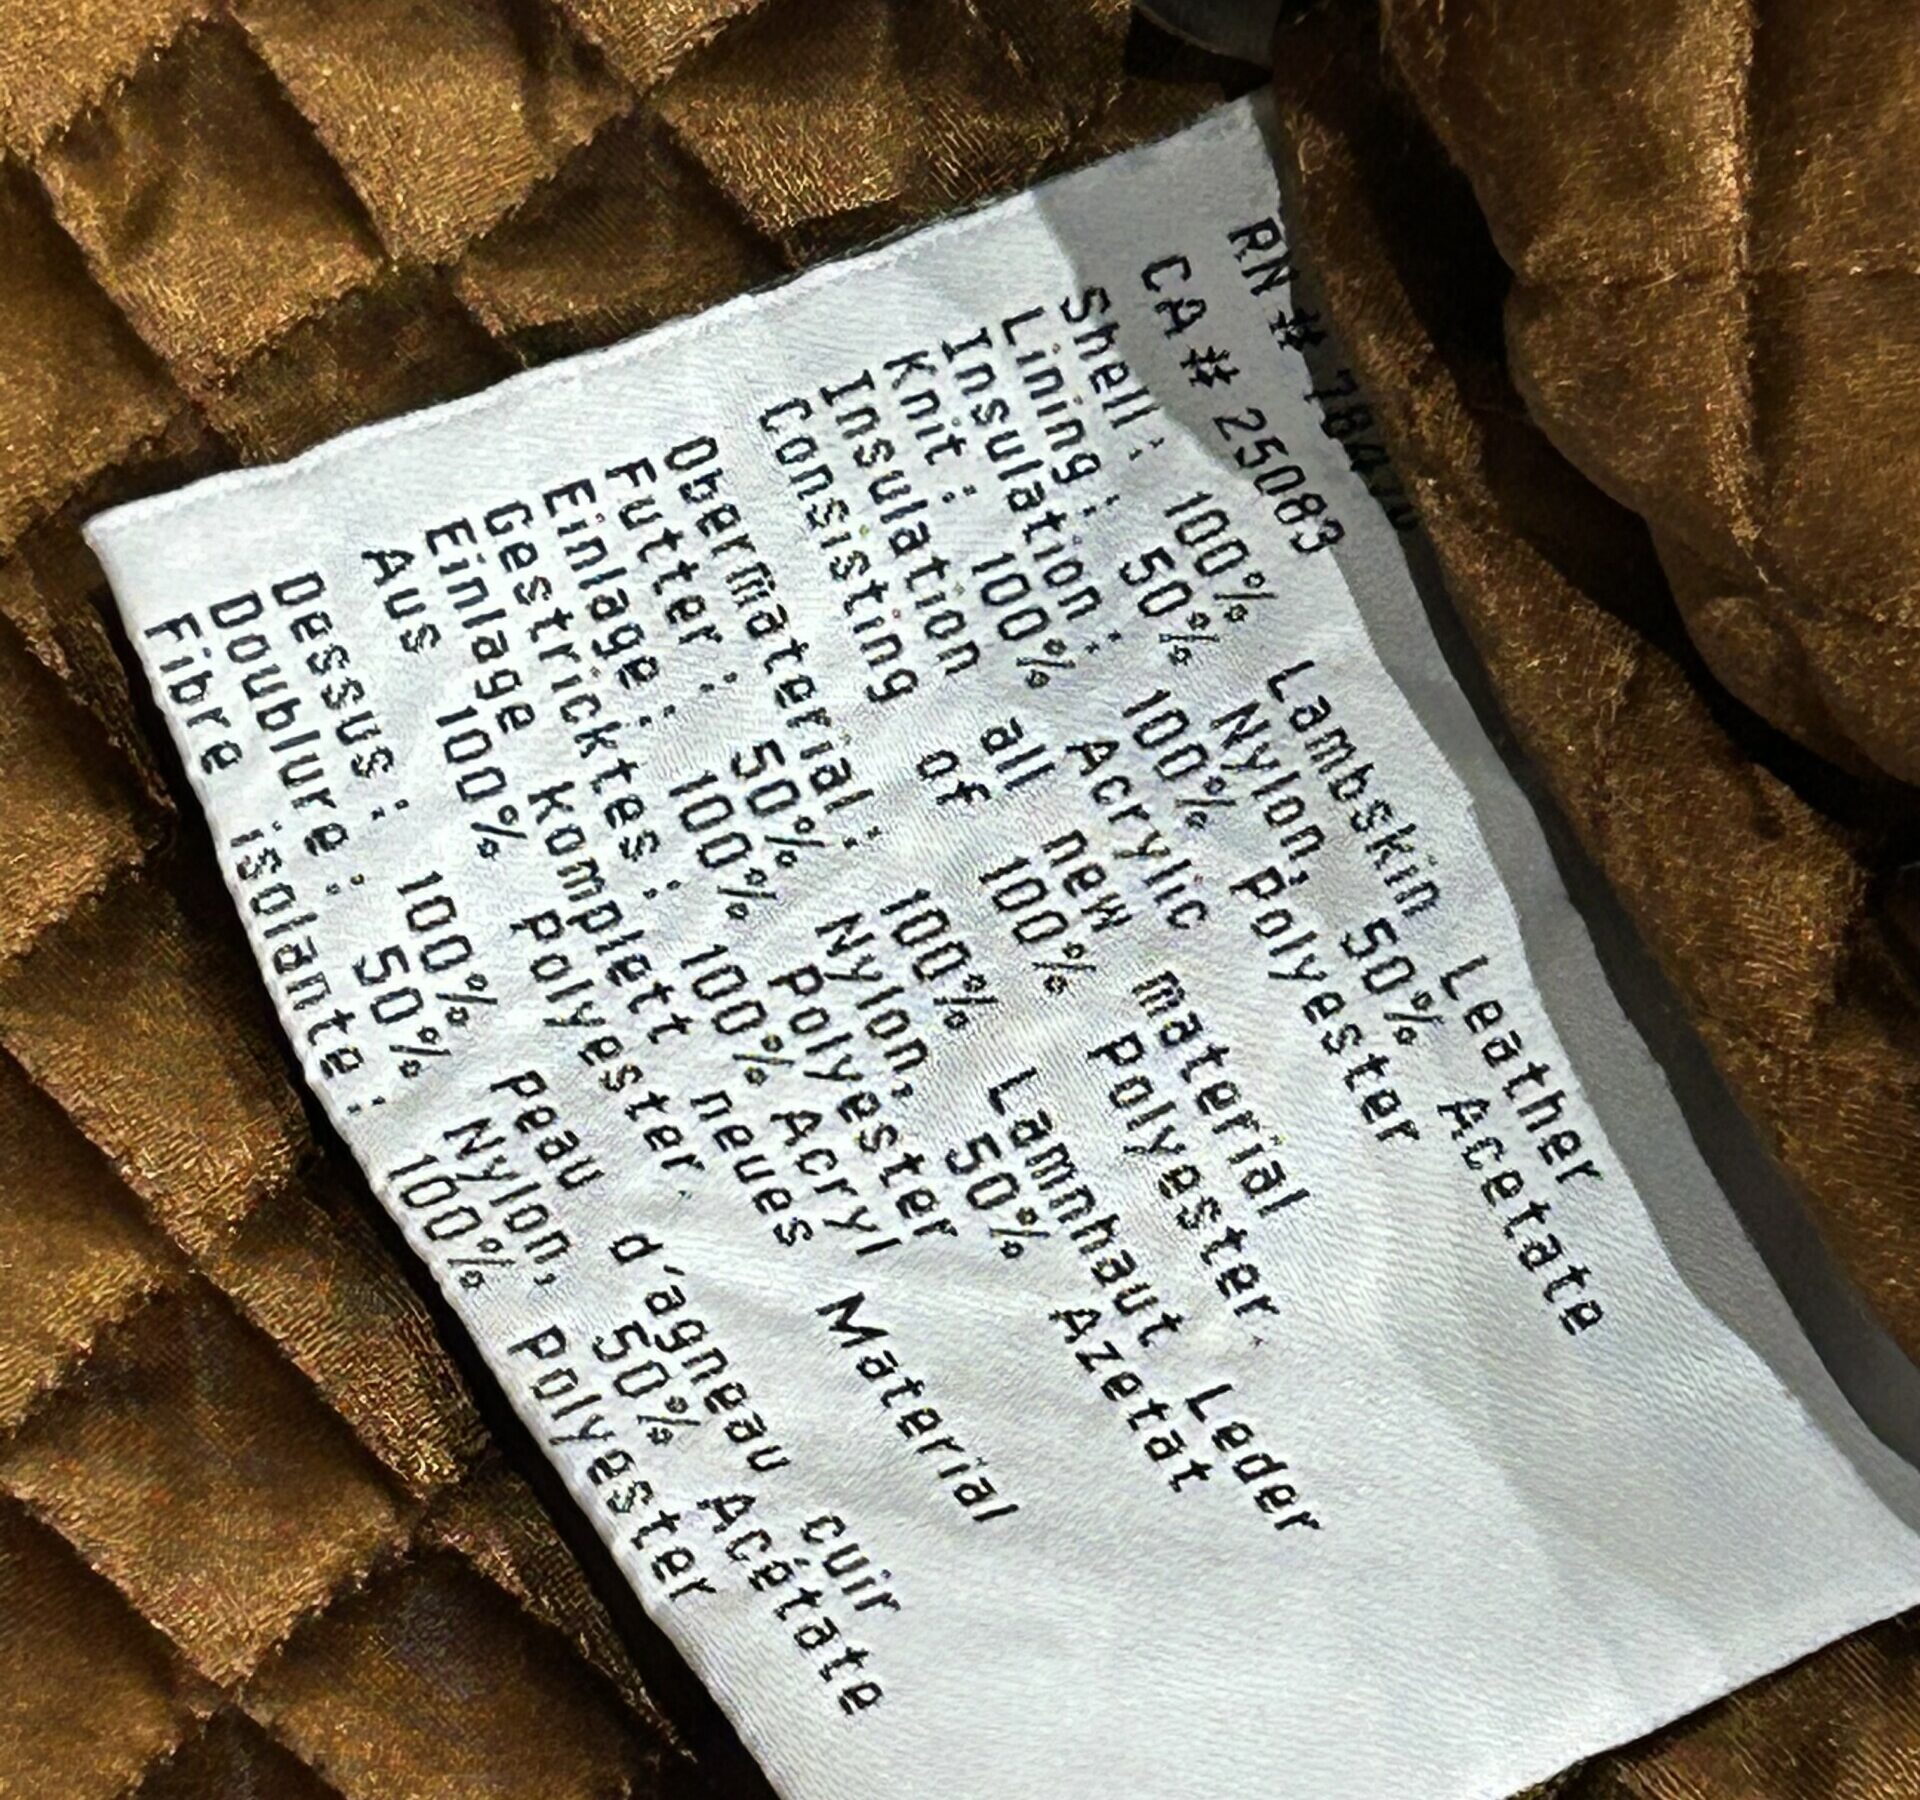 RN #
CA # 25083
Shell: 100% Lambskin Leather
Lining: 50% Nylon, 50% Acetate
Insulation: 100% Polyester
Knit: 100% Acrylic
Insulation all new material
Consisting of 100% Polyester.
Obermaterial: 100% Lammhaut Leder
Futter: 50% Nylon, 50% Azetat
Einlage: 100% Polyester
Gestricktes: 100% Acryl
Einlage komplett neues Material
Aus 100% Polyester.
Dessus: 100% Peau d'agneau cuir
Doublure: 50% Nylon, 50% Acétate
Fibre isolante: 100% Polyester